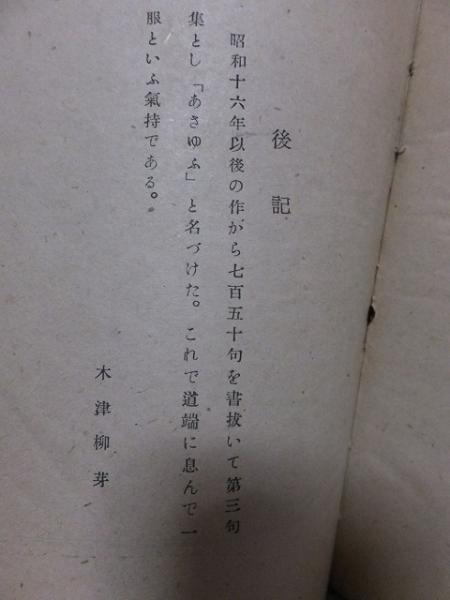 後記
昭和十六年以後の作から七百五十句を書拔いて第三句
集とし「あさゆふ」と名づけた。これで道端に息んで一
服といふ氣持である。
木津柳芽